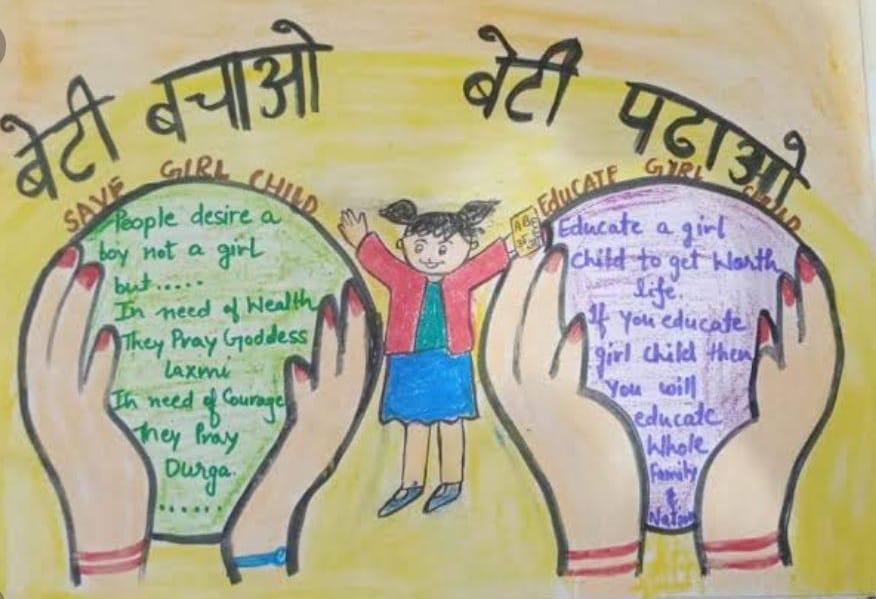 बेटी बचाओ
बेटी पढाओ
SAVE GIRL CHILD
People desire a
boy not a girl
but.....
In need of Wealth
They Pray Goddess
Laxmi
In need of Courage
They Pray
Durga.
......
ABC
EDUCATE GIRL CHILD
Educate a girl
Child to get Worth
life
If You educate
girl child then
You will
educate
Whole
Family
&
Nation